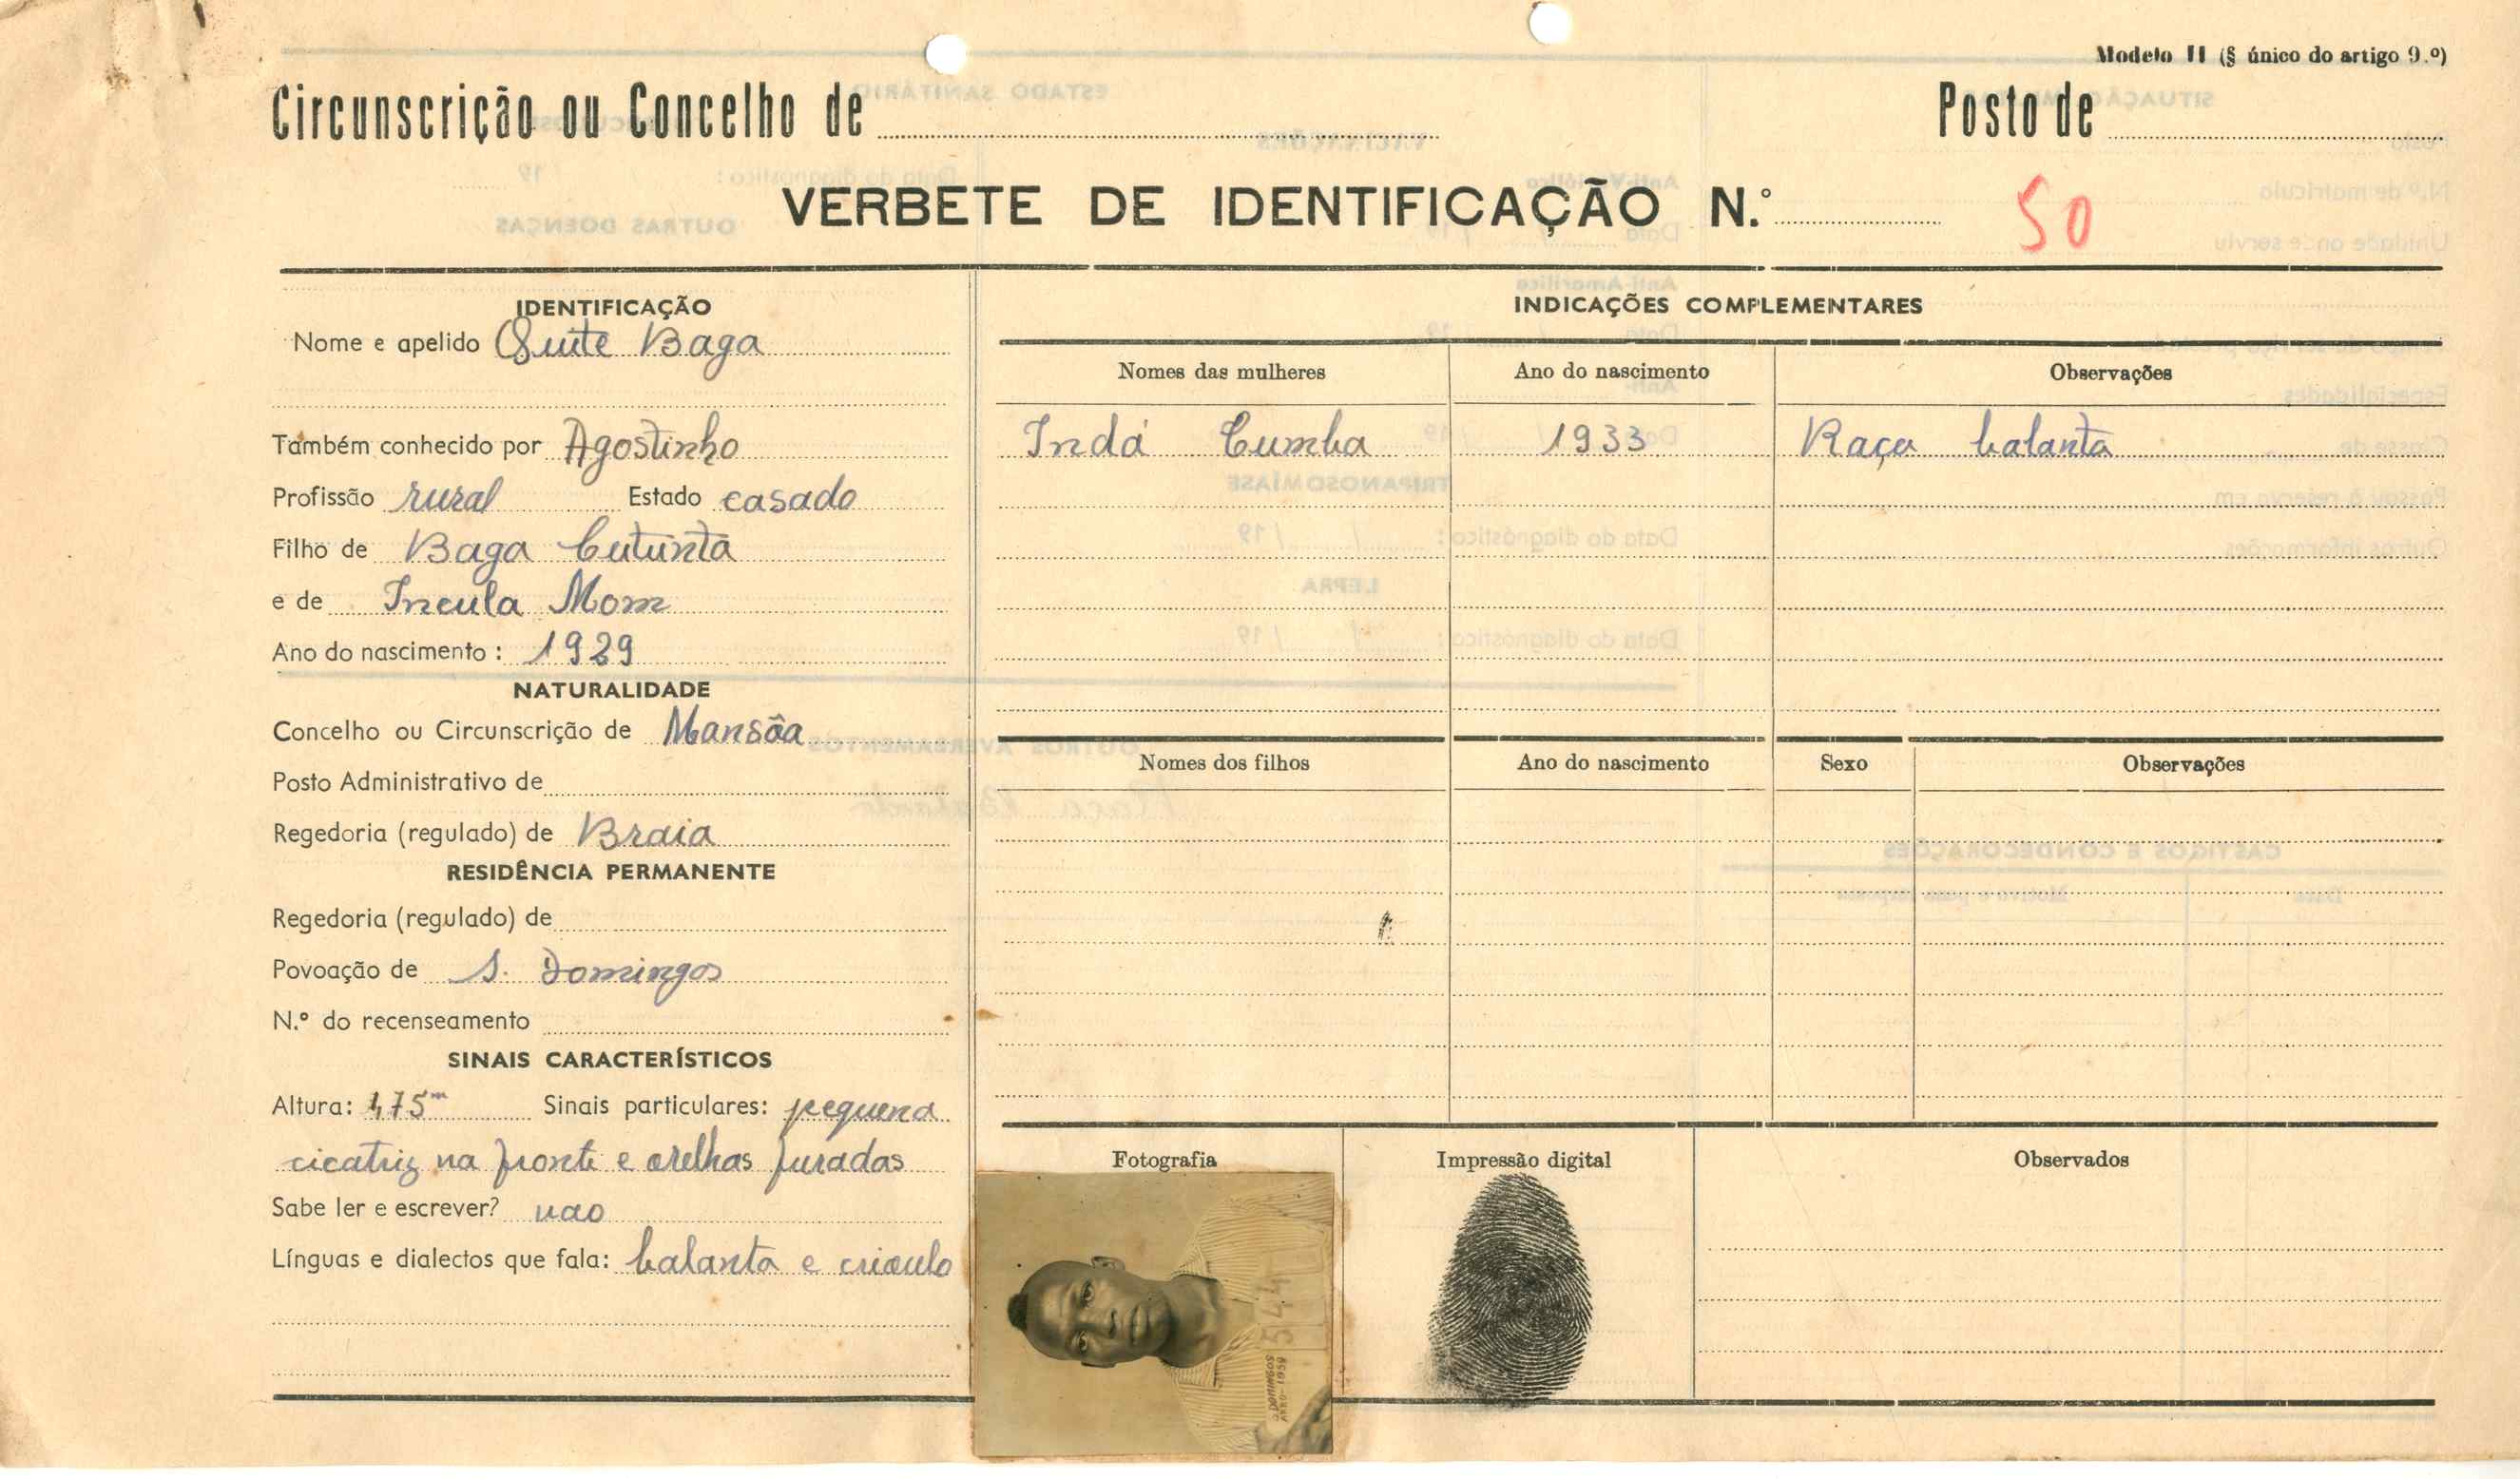 Modelo II (§ único do artigo 9.º)
Circunscrição ou Concelho de Posto de
VERBETE DE IDENTIFICAÇÃO N.º 50
IDENTIFICAÇÃO
Nome e apelido Quite Baga
Também conhecido por Agostinho
Profissão rural Estado casado
Filho de Baga Cutunta
e de Incula Mom
Ano do nascimento: 1929
NATURALIDADE
Concelho ou Circunscrição de Mansôa
Posto Administrativo de
Regedoria (regulado) de Braia
RESIDÊNCIA PERMANENTE
Regedoria (regulado) de
Povoação de S. Domingos
N.º do recenseamento
SINAIS CARACTERÍSTICOS
Altura: 1,75m Sinais particulares: pequena
cicatriz na fronte e orelhas furadas
Sabe ler e escrever? nao
Línguas e dialectos que fala: balanta e crioulo
INDICAÇÕES COMPLEMENTARES
Nomes das mulheres Ano do nascimento Observações
Indá Cumba 1933 Raça balanta
Nomes dos filhos Ano do nascimento Sexo Observações
Fotografia Impressão digital Observados
544
S. DOMINGOS
ANO-1959